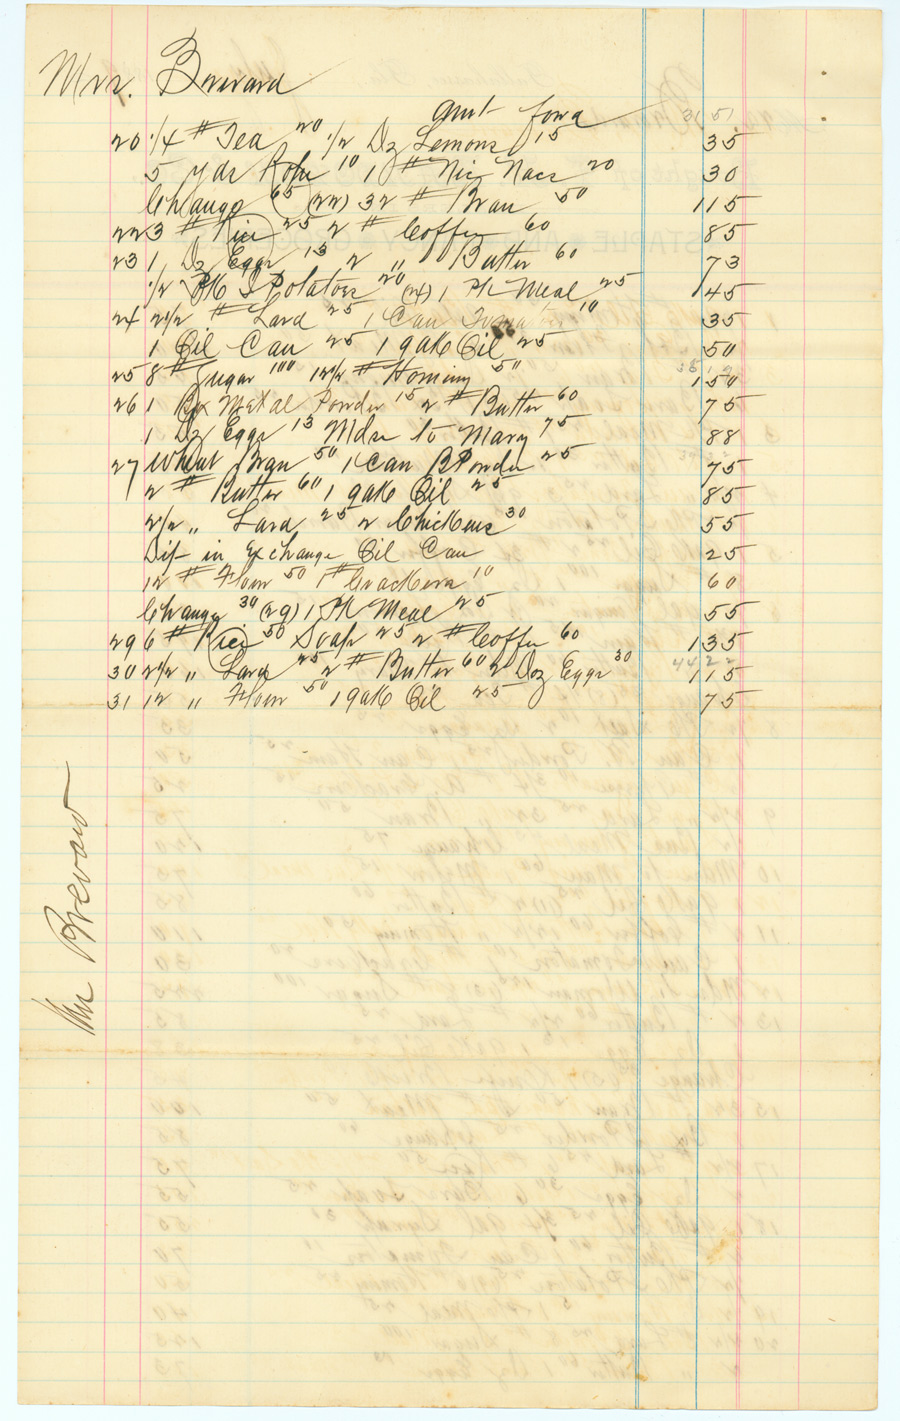 Mrs. Brevard
Amt Fowd 31 51
20 1/4 # Tea 20 1/2 Dz Lemons 15 35
5 yds Rope 10 1 # Nic Nacs 20 30
Change 65 (22) 32 # Bran 50 115
22 3 # Rice 25 2 # Coffee 60 85
23 1 Dz Eggs 13 2 " Butter 60 73
1/2 PK S Potatoes 20 (24) 1 Pk Meal 25 45
24 2 1/2 # Lard 25 1 Can Tomatoes 10 35
1 Oil Can 25 1 gal Oil 25 50
25 8 # Sugar 100 12 1/2 # Hominy 50 150
26 1 Bx Metal Powder 15 2 # Butter 60 75
1 Dz Eggs 13 Mdse to Mary 75 88
27 Wheat Bran 50 1 Can B Powder 25 75
2 # Butter 60 1 gal Oil 25 85
2 1/2 " Lard 25 2 Chickens 30 55
Dif in Exchange Oil Can 25
12 # Flour 50 1 # Crackers 10 60
Change 30 (29) 1 Pk Meal 25 55
29 6 # Rice 50 Soap 25 2 # Coffee 60 135
30 2 1/2 " Lard 25 2 # Butter 60 2 Doz Eggs 30 115
31 12 " Flour 50 1 gal Oil 25 75
Mrs Brevard